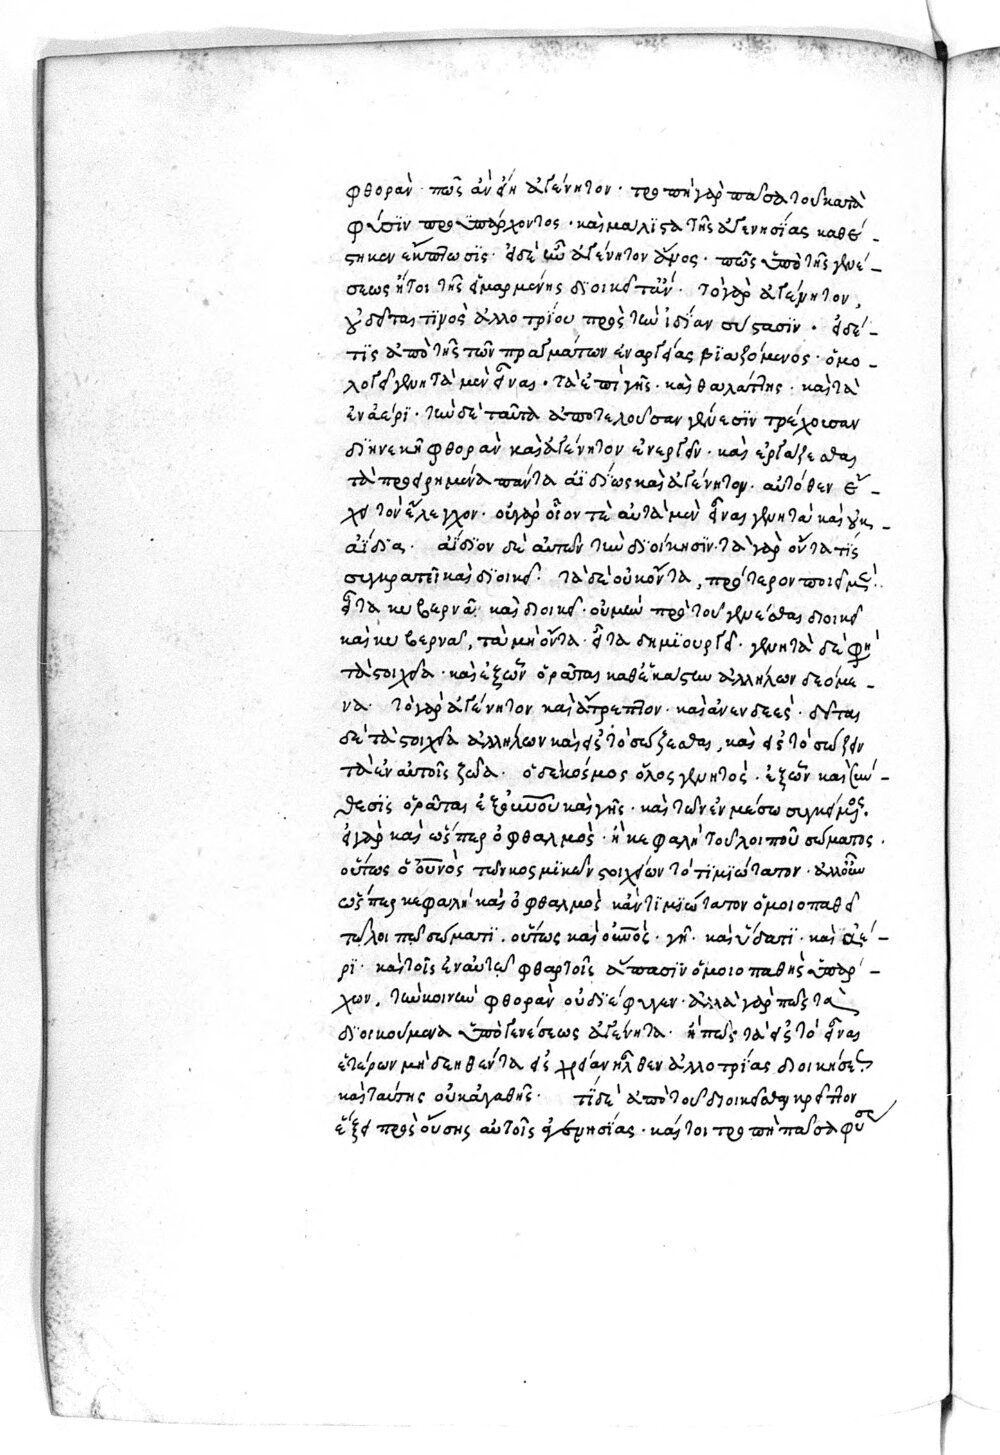 φθοραν· πῶς ἂν εἴη ἀγένητον· τροπὴ γὰρ πᾶσα τοῦ κατὰ
φύσϊν προϋπάρχοντος· καὶ μάλϊστα τῆς ἀγενησίας καθέ-
στηκεν ἔκπτωσϊς· εἰ δὲ μὴ ἀγένητον
σεως ἤτοι τῆς εἱμαρμένης δϊοικεῖται· τὸ γὰρ ἀγένητον,
οὐ δεῖται τϊνὸς ἀλλοτρίου πρὸς τὴν ἰδίαν σύστασϊν· εἰ δέ-
τϊς ἀπὸ τῆς τῶν πραγμάτων ἐναργείας βϊαζόμενος· ὁμο-
λογεῖ γενητὰ μὲν εἶναι· τὰ ἐπὶ γῆς· καὶ θαλάττης· καὶ τὰ
ἐν ἀέρϊ· τὴν δὲ ταῦτα ἀποτελοῦσαν γένεσϊν τρέχουσαν
δϊηνεκῆ φθορὰν καὶ ἀγένητον ἐνεργεῖν· καὶ ἐργάζεσθαι
τὰ προειρημένα πάντα ἀϊδίως καὶ ἀγένητον· αὐτόθεν ἔ-
χει τὸν ἔλεγχον· οὐ γὰρ οἷόν τε αὐτὰ μὲν εἶναι γενητὰ καὶ οὐκ
ἀΐδια· ἀΐδϊον δὲ αὐτῶν τὴν δϊοίκησϊν· τὰ γὰρ ὄντα τϊς
συγκρατεῖ καὶ δϊοικεῖ· τὰ δὲ οὐκ ὄντα, πρότερον ποιεῖ μὲν·
εἶτα κυβερνᾶ· καὶ διοικεῖ· οὐ μὴν πρὸ τοῦ γενέσθαι διοικεῖ
καὶ κυβερνᾶ, τὰ μὴ ὄντα· εἶτα δημϊουργεῖ· γενητὰ δέ φη
τὰ στοιχεῖα· καὶ ἐξ ὧν ὁρᾶται καθ' ἑκάστην ἀλλήλων δεόμε-
να· τὸ γὰρ ἀγένητον καὶ ἄτρεπτον· καὶ ἀνενδεές· δεῖται
δὲ τὰ στοιχεῖα ἀλλήλων καὶ εἰς τὸ σώζεσθαι, καὶ εἰς τὸ σώζειν
τὰ ἐν αὐτοῖς ζῶα· ὁ δὲ κόσμος ὅλος γενητός· ἐξ ὧν καὶ συν-
θεσϊς ὁρᾶται ἐξ οὐρανοῦ καὶ γῆς· καὶ τῶν ἐν μέσω συγκείμενος.
εἰ γὰρ καὶ ὥσπερ ὁ φθαλμὸς· ἢ κεφαλὴ τοῦ λοιποῦ σώματος·
οὕτως ὁ οὐρανὸς τῶν κοσμϊκῶν στοιχείων τὸ τϊμϊώτατον· ἀλλ' οὖν
ὥσπερ κεφαλὴ καὶ ὀφθαλμὸς κἂν τϊμϊώτατον ὁμοιοπαθεῖ
τῶ λοιπῶ σώματϊ. οὕτως καὶ οὐρανὸς· γῆ· καὶ ὕδατϊ· καὶ ἀέ-
ρϊ· καὶ τοῖς ἐν αὐτῶ φθαρτοῖς ἅπασϊν ὁμοιοπαθὴς ὑπάρ-
χων, τὴν κοινὴν φθορὰν οὐ δϊέφυγεν· ἀλλὰ γὰρ πῶς τὰ
δϊοικούμενα ὑπὸ γενέσεως ἀγένητα· ἢ πῶς τὰ εἰς τὸ εἶναι
ἑτέρων μὴ δεηθέντα εἰς χρείαν ἦλθεν ἀλλοτρίας διοικήσεως
καὶ ταύτης οὐκ ἀγαθῆς· τϊ δὲ ἀπὸ τοῦ διοικεῖσθαι κρεῖττον
ἕξει προσούσης αὐτοῖς ἀγενησίας· καίτοι τροπὴ πᾶσα φύσει